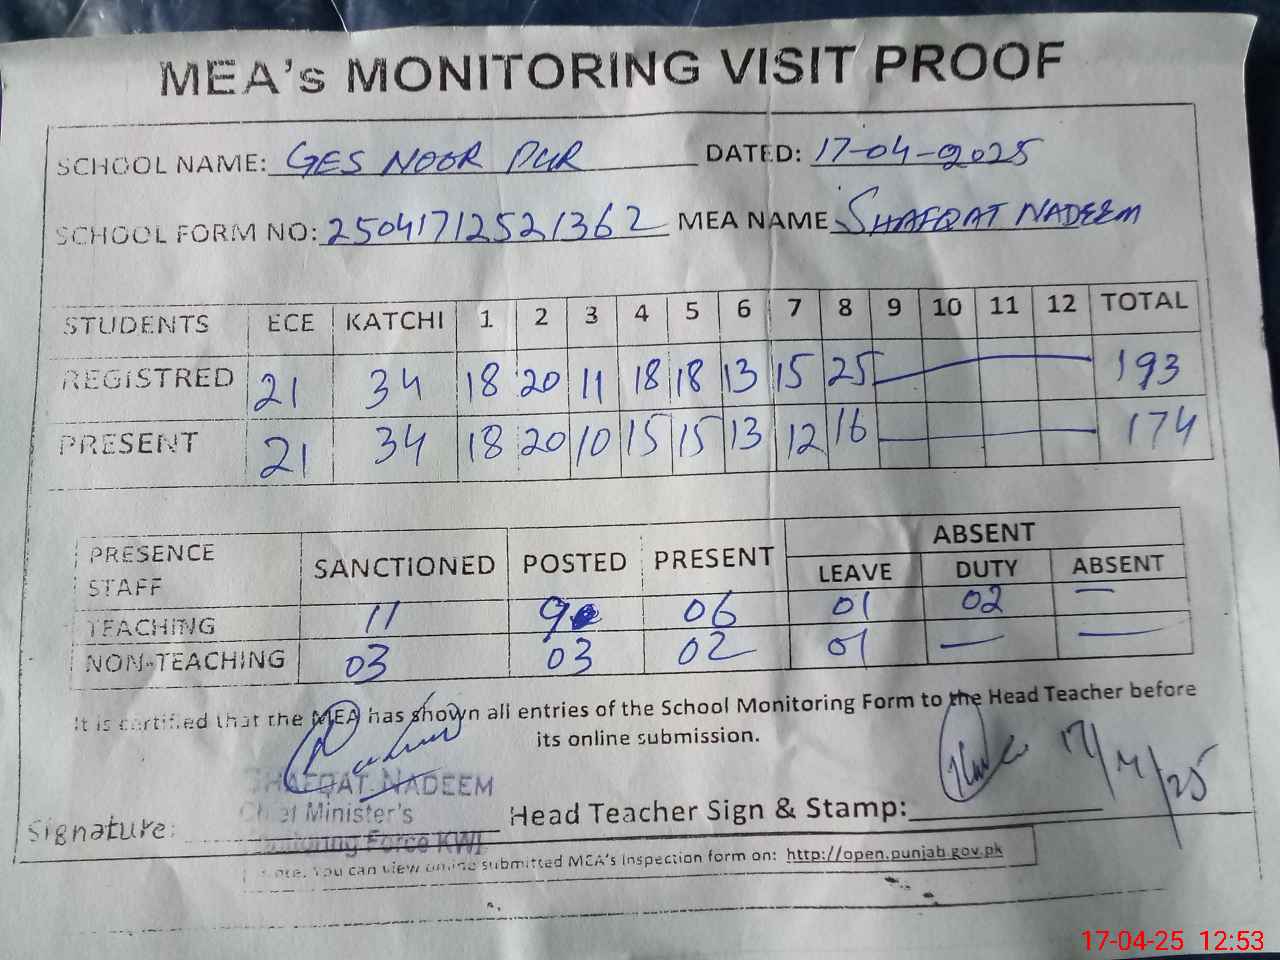 MEA's MONITORING VISIT PROOF
SCHOOL NAME: GES NOOR PUR DATED: 17-04-2025
SCHOOL FORM NO: 25041712521362 MEA NAME SHAFQAT NADEEM
STUDENTS ECE KATCHI 1 2 3 4 5 6 7 8 9 10 11 12 TOTAL
REGISTRED 21 34 18 20 11 18 18 13 15 25 193
PRESENT 21 34 18 20 10 15 15 13 12 16 174
PRESENCE STAFF SANCTIONED POSTED PRESENT ABSENT
LEAVE DUTY ABSENT
TEACHING 11 9 06 01 02 —
NON-TEACHING 03 03 02 01 — —
It is certified that the MEA has shown all entries of the School Monitoring Form to the Head Teacher before
its online submission.
SHAFQAT NADEEM
Chief Minister's
Monitoring Force KWL
Signature: Head Teacher Sign & Stamp: 17/4/25
Note. You can view online submitted MEA's inspection form on: http://open.punjab.gov.pk
17-04-25 12:53